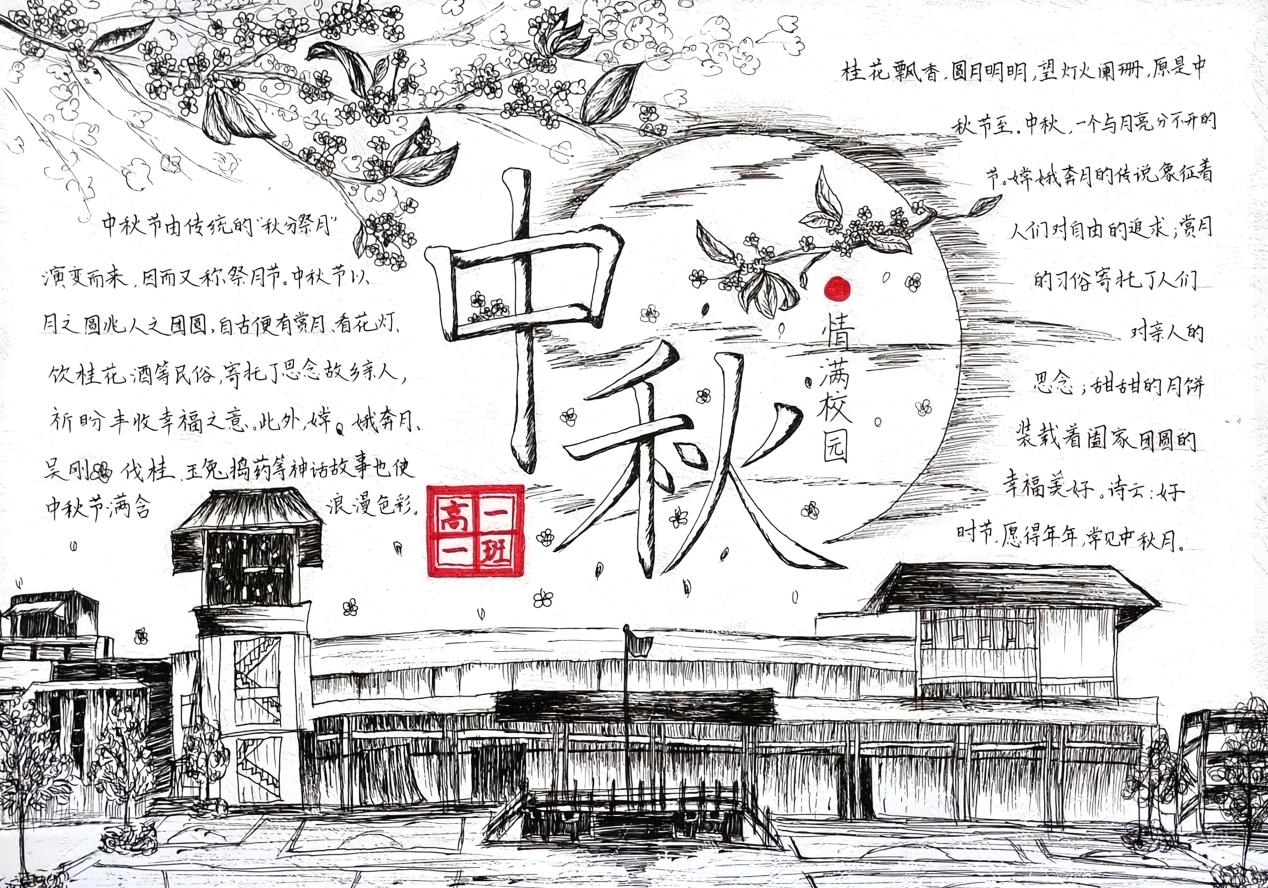 中秋
情满校园
高一
一班
中秋节由传统的“秋分祭月”
演变而来,因而又称祭月节。中秋节以
月之圆兆人之团圆,自古便有赏月、看花灯、
饮桂花酒等民俗,寄托了思念故乡亲人,
祈盼丰收幸福之意。此外,嫦娥奔月、
吴刚伐桂、玉兔捣药等神话故事也使
中秋节满含浪漫色彩。
桂花飘香,圆月明明,望灯火阑珊,原是中
秋节至。中秋,一个与月亮分不开的
节。嫦娥奔月的传说象征着
人们对自由的追求;赏月
的习俗寄托了人们
对亲人的
思念;甜甜的月饼
装载着阖家团圆的
幸福美好。诗云:好
时节,愿得年年,常见中秋月。